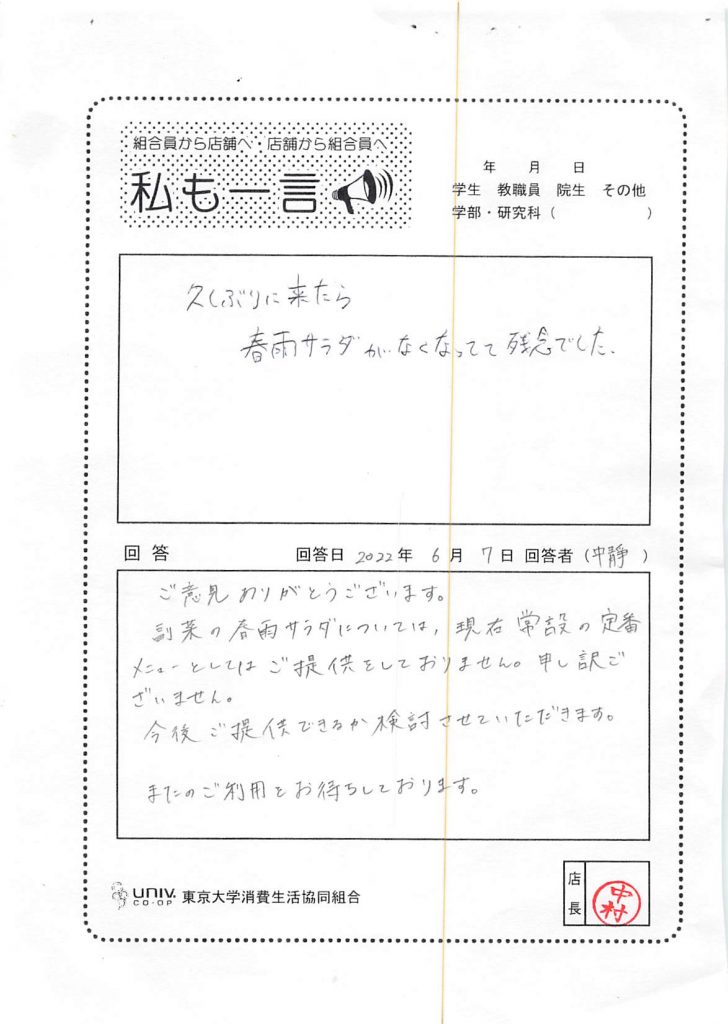 組合員から店舗へ・店舗から組合員へ
私も一言
年 月 日
学生 教職員 院生 その他
学部・研究科( )
久しぶりに来たら
春雨サラダがなくなってて残念でした.
回答 回答日 2022年 6月 7日 回答者(中静 )
ご意見ありがとうございます。
副菜の春雨サラダについては、現在常設の定番
メニューとしてはご提供をしておりません。申し訳ご
ざいません。
今後ご提供できるか検討させていただきます。
またのご利用をお待ちしております。
UNIV. CO-OP 東京大学消費生活協同組合
店長
中村